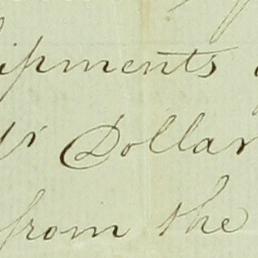 ipments
Dollar
from the